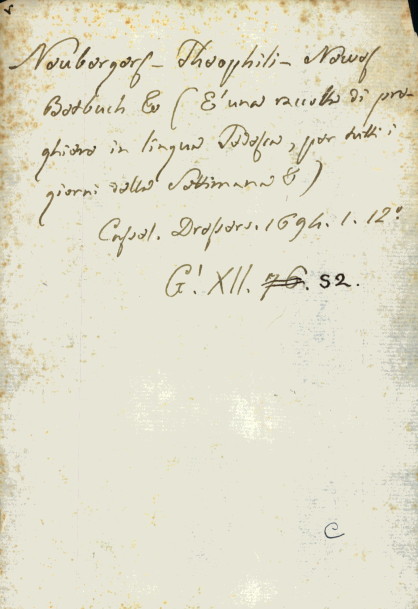 Neubergers - Theophili - Neues
Betbuch &c ( È una raccolta di pre-
ghiere in lingua Tedesca, per tutti i
giorni della Settimana & )
Cassel. Dressers. 1694. 1. 12°
G. XII. 76. 52.
C